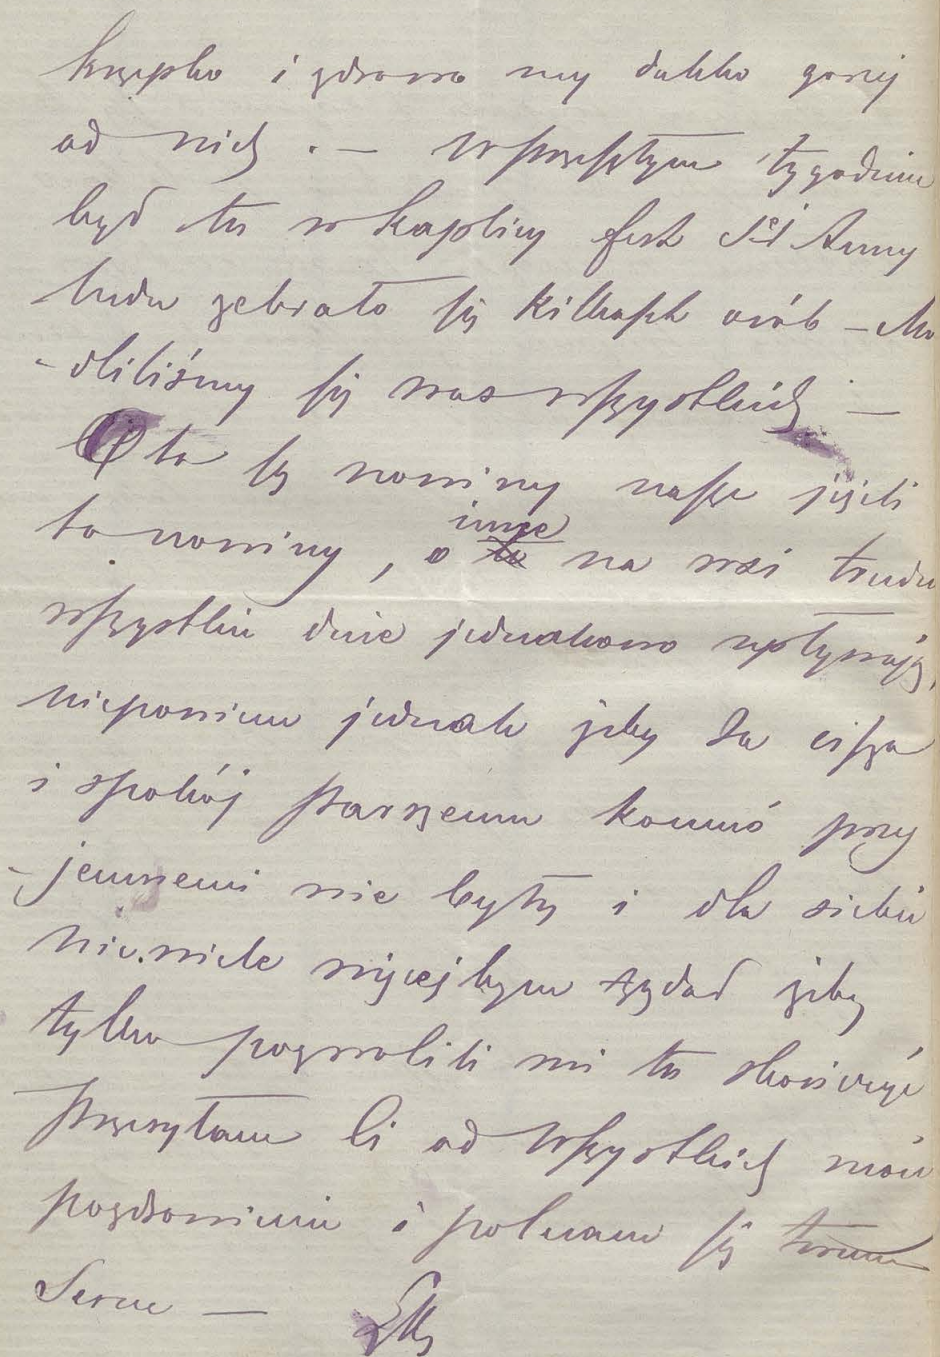 krzepko i zdrowo my daleko gorzej
od nich . — W przeszłym tygodniu
był tu w kaplicy fest Stej Anny
ludu zebrało się kilkaset osób — Mo
-dliliśmy się was wszystkich —
Oto są nowiny nasze jeżeli
to nowiny, o inne na wsi trudu
wszystkie dnie jednakowo upływają,
niepowiem jednak żeby ta cisza
i spokój starszemu komuś przy
-jemnemi nie były i dla siebie
nic wiele więcej bym żądał żeby
tylko pozwolili mi tu skończyć
Przesyłam Ci od Wszystkich
pozdrowienia i polecam się twemu
Sercu —